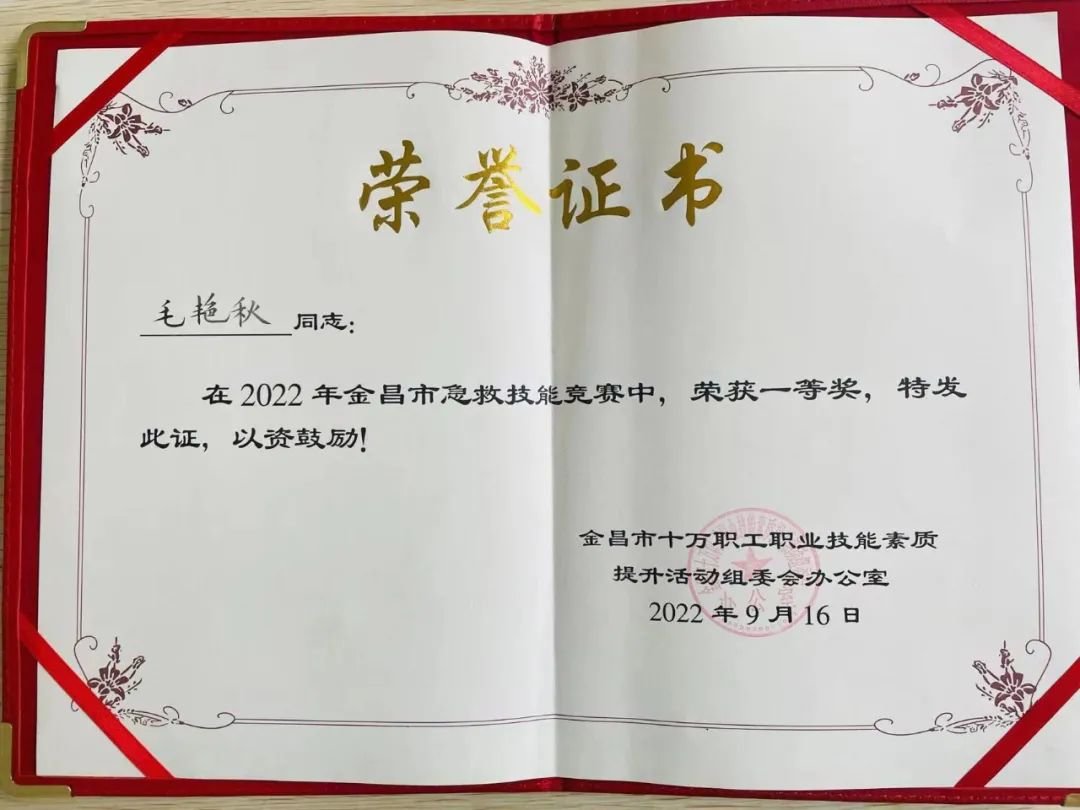 荣誉证书
毛艳秋 同志：
在2022年金昌市急救技能竞赛中，荣获一等奖，特发
此证，以资鼓励！
金昌市十万职工职业技能素质
提升活动组委会办公室
2022年9月16日